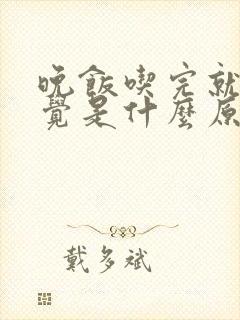 晚飯喫完就
覺是什麼原
戴多斌